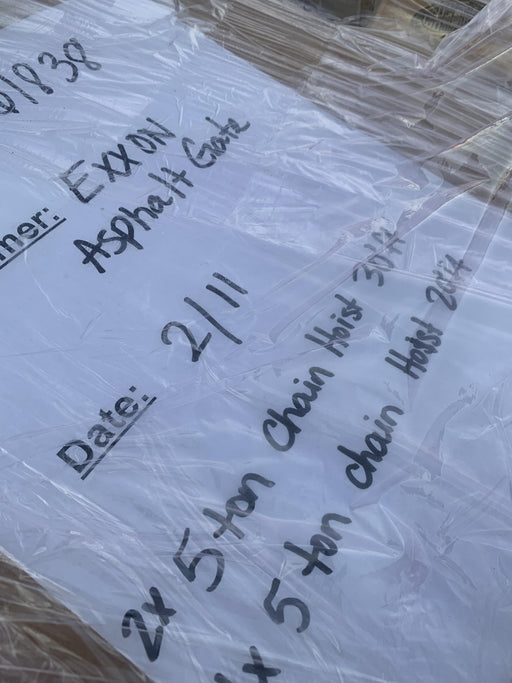 01838
mer: EXXON
Asphalt Gate
Date: 2/11
2x 5 ton Chain Hoist 30ft
1x 5 ton chain Hoist 20ft